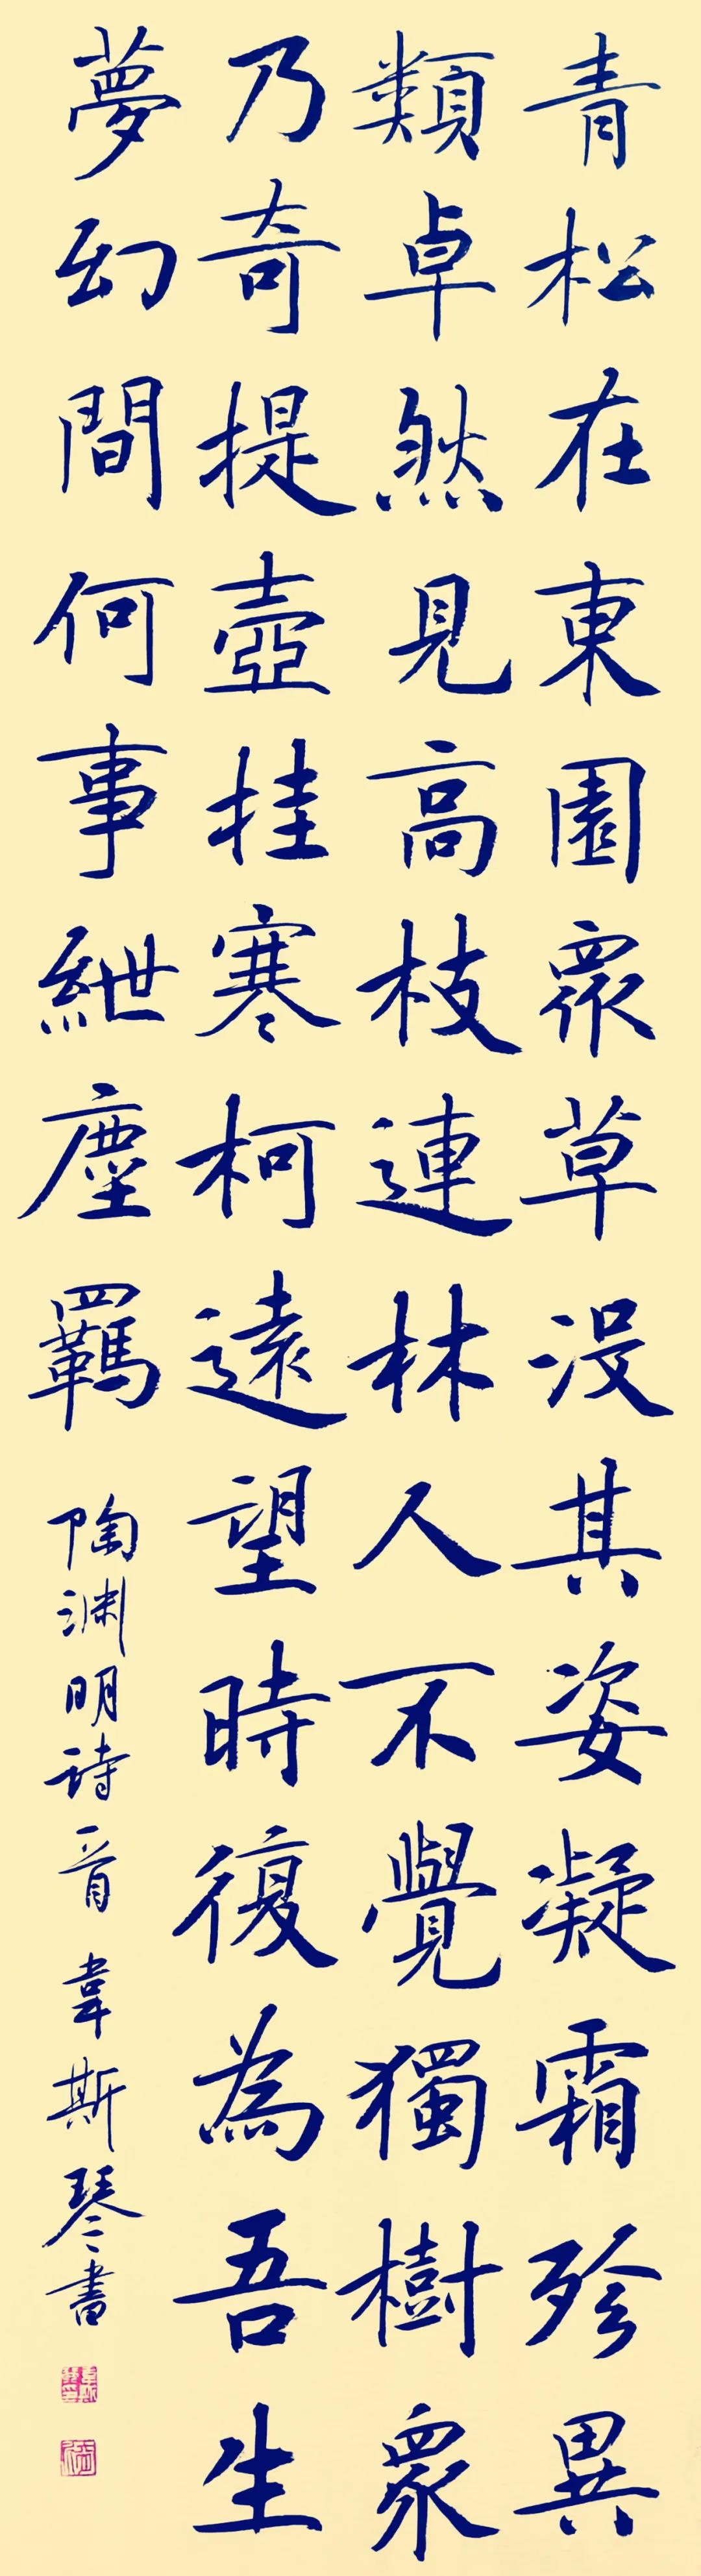 青松在東園衆草没其姿凝霜殄異
類卓然見高枝連林人不覺獨樹衆
乃奇提壺挂寒柯遠望時復為吾生
夢幻間何事紲塵羈
陶渊明詩一首 韋斯琴書